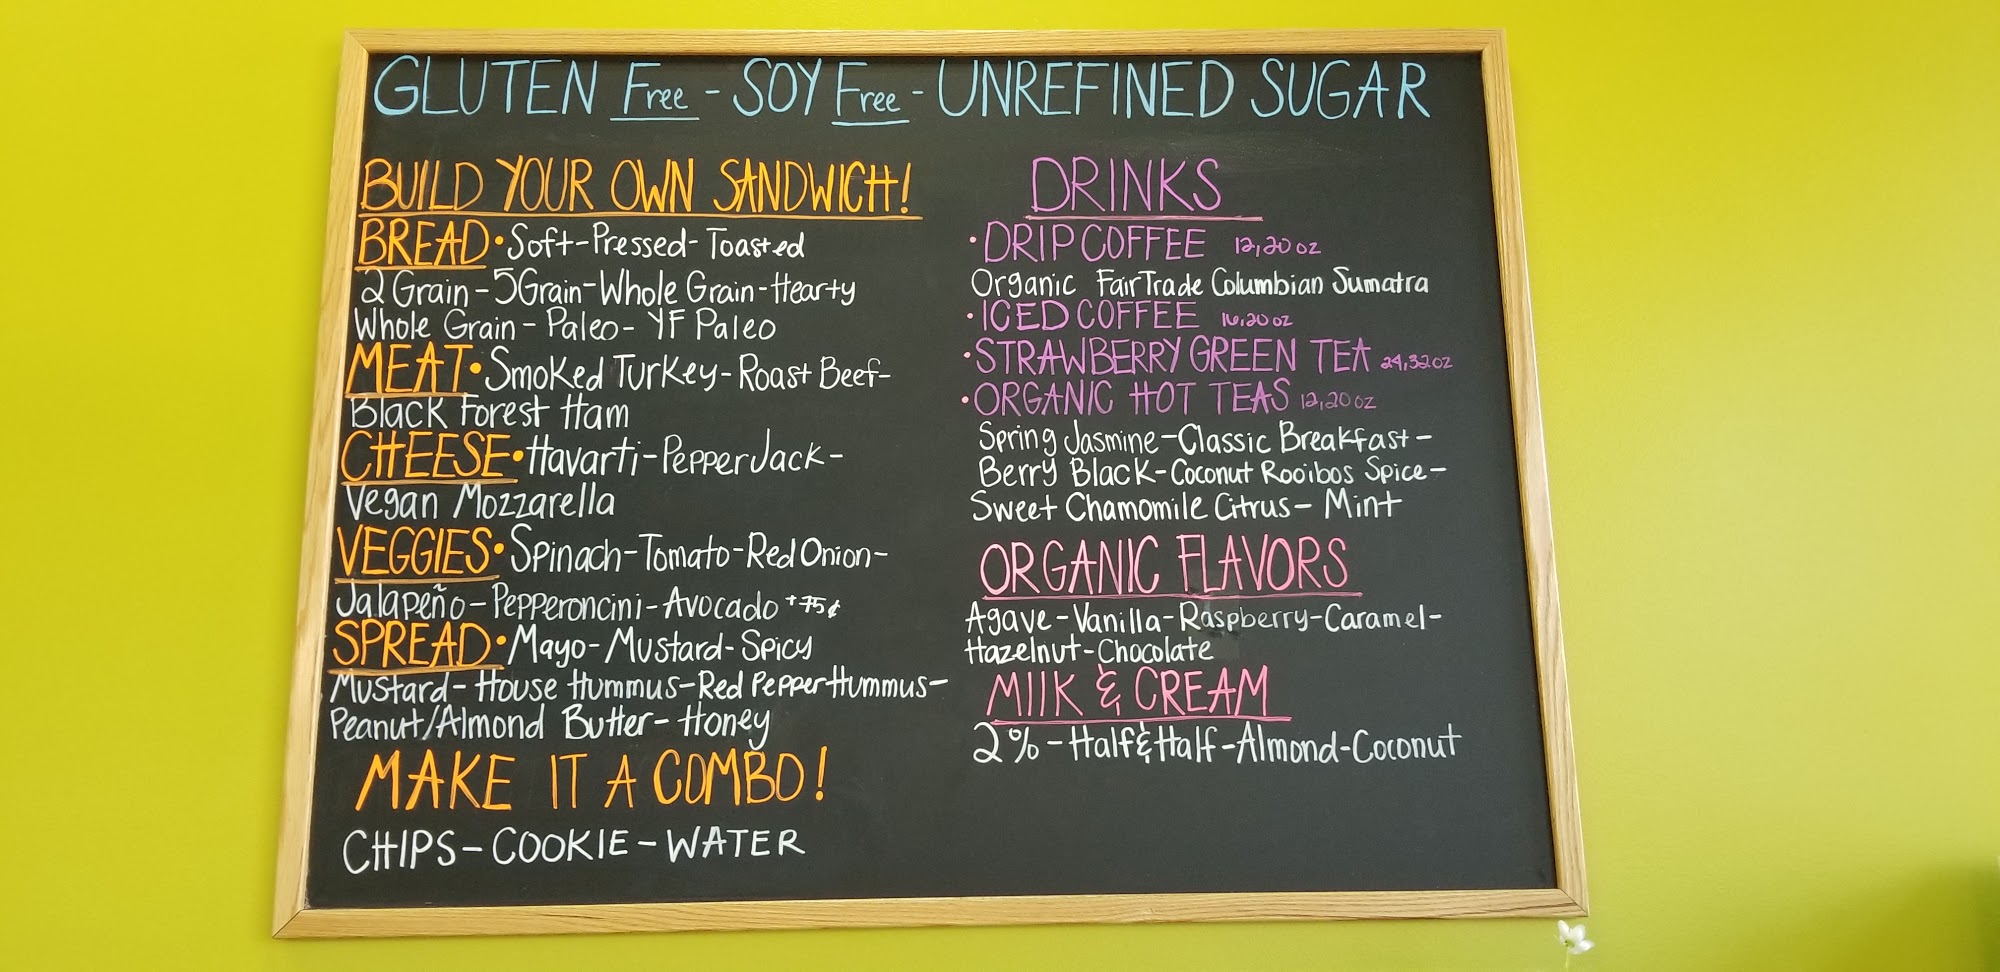 GLUTEN Free - SOY Free - UNREFINED SUGAR
BUILD YOUR OWN SANDWICH!
BREAD • Soft-Pressed-Toasted
2 Grain-5Grain-Whole Grain-Hearty
Whole Grain-Paleo-YF Paleo
MEAT • Smoked Turkey-Roast Beef-
Black Forest Ham
CHEESE • Havarti-PepperJack-
Vegan Mozzarella
VEGGIES • Spinach-Tomato-Red Onion-
Jalapeño-Pepperoncini-Avocado +75¢
SPREAD • Mayo-Mustard-Spicy
Mustard-House Hummus-Red Pepper Hummus-
Peanut/Almond Butter-Honey
MAKE IT A COMBO!
CHIPS-COOKIE-WATER
DRINKS
• DRIP COFFEE 12,20 oz
Organic FairTrade Columbian Sumatra
• ICED COFFEE 16,20 oz
• STRAWBERRY GREEN TEA 24,32oz
• ORGANIC HOT TEAS 12,20 oz
Spring Jasmine-Classic Breakfast-
Berry Black-Coconut Rooibos Spice-
Sweet Chamomile Citrus-Mint
ORGANIC FLAVORS
Agave-Vanilla-Raspberry-Caramel-
Hazelnut-Chocolate
MIlK & CREAM
2%-Half&Half-Almond-Coconut